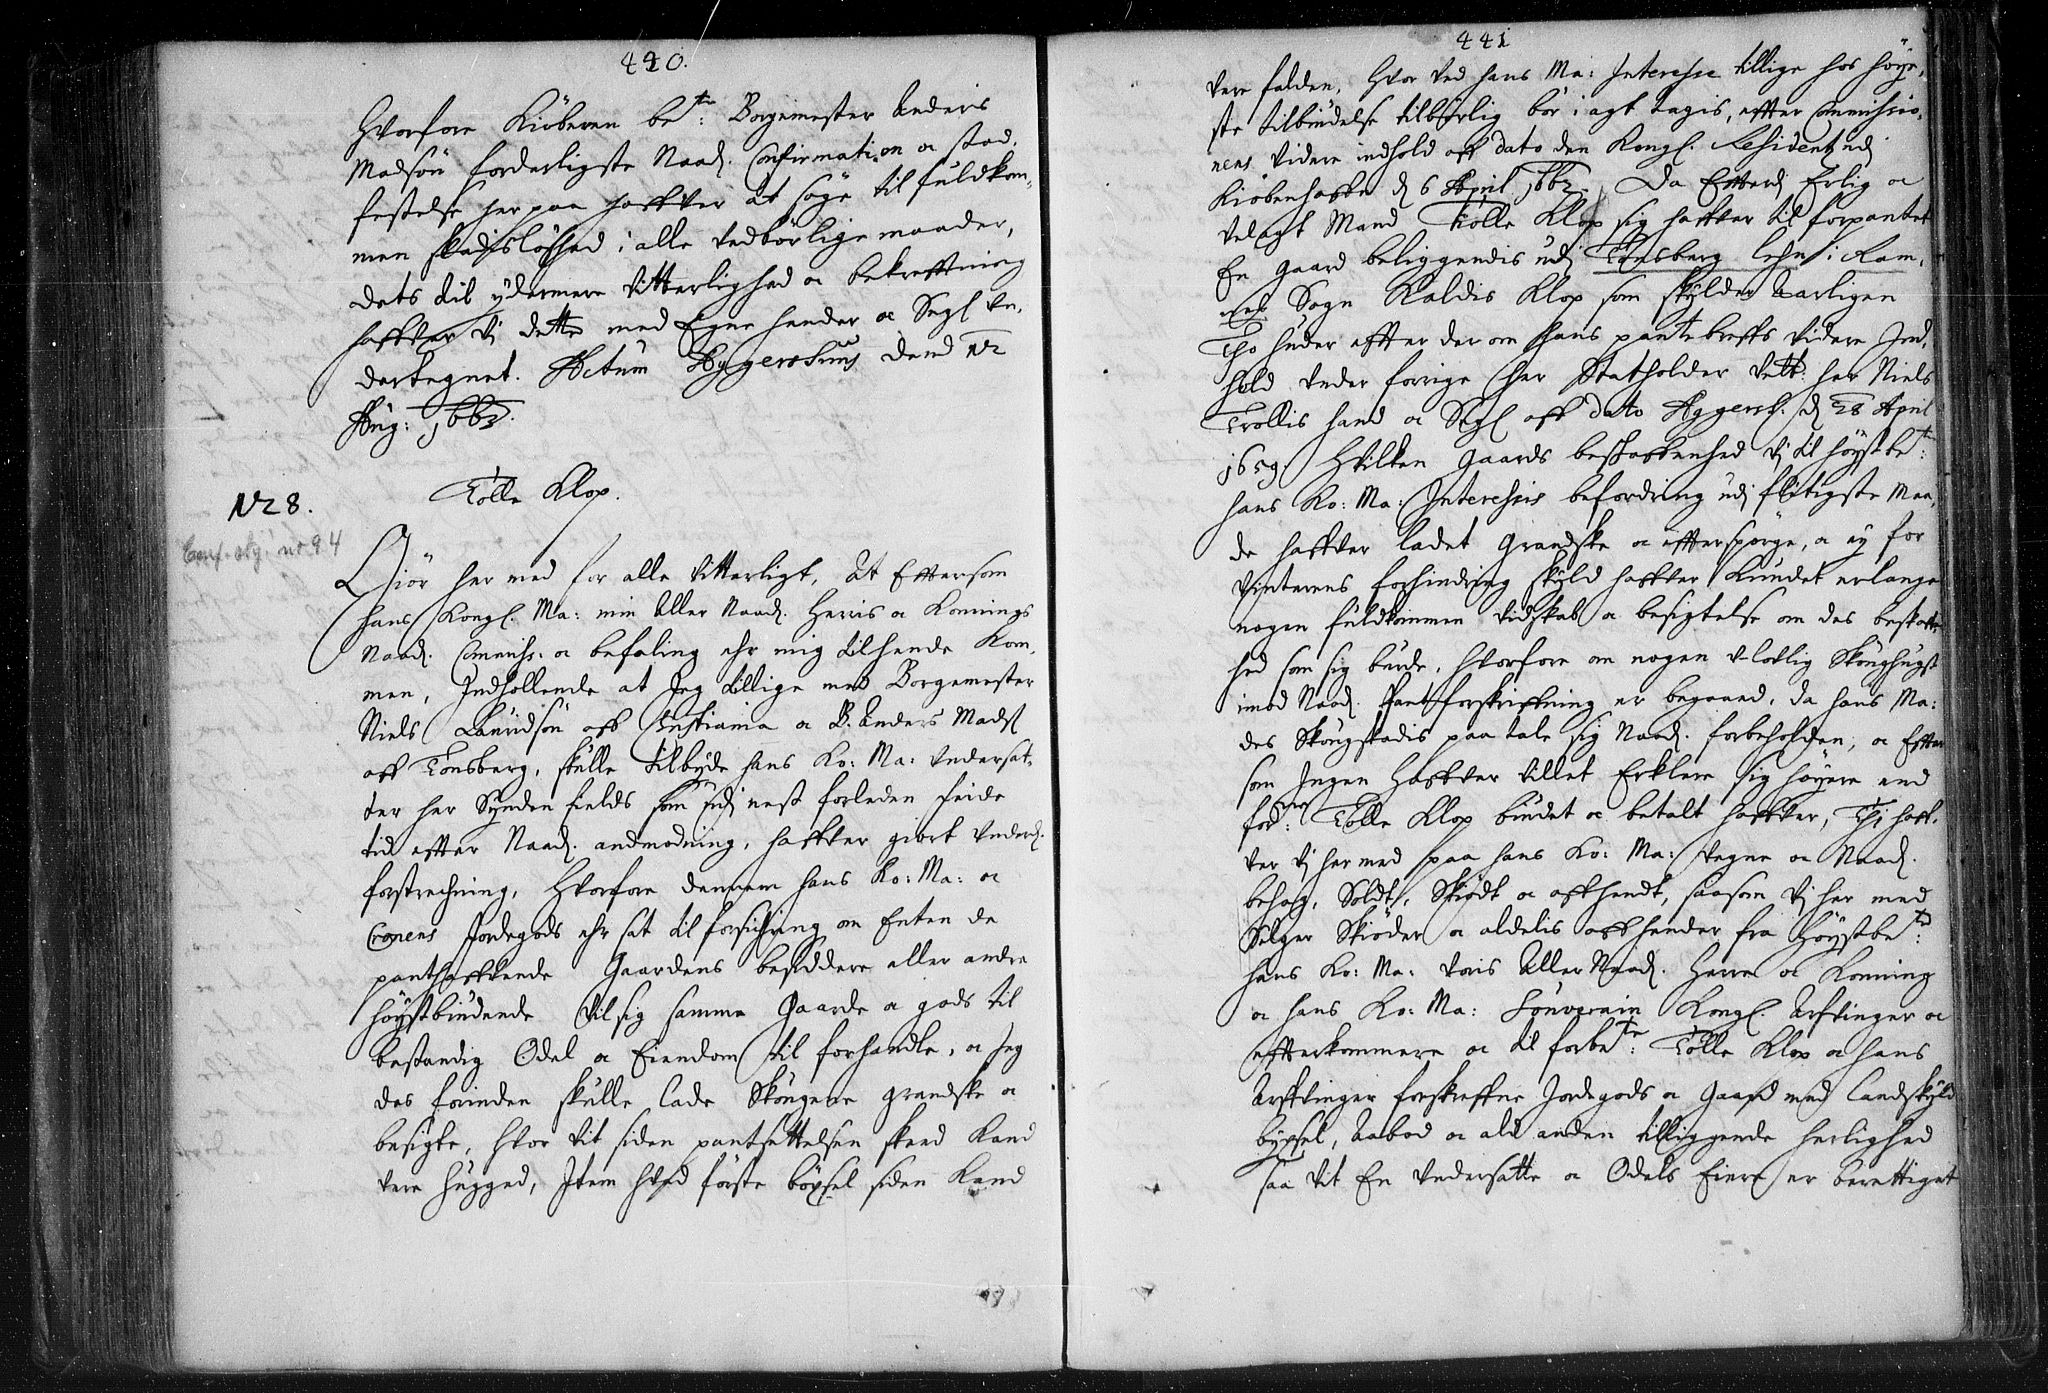 440.
Hvorfore Kiøberen be^te: Borgemester Anders
Madsøn forderligste Naad. Confirmation oc stad-
festelse her paa haffver at søge til fuldkom-
men skadisløshed i alle vedbørlige maader,
dets til ydermere vitterlighed oc bekrefftning
haffver vj dette med Egne hender oc Segl un-
dertegnet. Actum Aggershuus dend
Aug: 1662.
N 28.
Tolle Klop.
Conf. nr 94
Giør her med for alle vitterligt, At Effter som
hans Kongl. Ma: min Aller Naad. Herris oc Konnings
Naad. Commihs. oc befaling ehr mig tilhende Kom-
men, Indhollende at Jeg tillige med Borgemester
Niels Lauridsøn aff Christiania oc B. Anders Mads
aff Tonsberg, skulle tilbyde hans Ko: Ma: undersat-
ter her Synden fields som udj nest forleden feide
tid effter Naad. andmodning, haffver giort underd.
forstrechning, Hvorfore dennem hans Ko: Ma: oc
Cronens Jordegods ehr sat til forsichring om Enten de
panthaffvende Gaardens besiddere eller andre
høystbiudende vil sig samme Gaarde oc gods til
bestandig Odel oc Eiendom til forhandle, oc Jeg
des forinden skulle lade Skougene grandske oc
besigte, hvor vit siden pantsettelsen skeed Kand
vere hugged, Item hvad første bøxsel siden Kand
441
vere falden, Hvor ved hans Ma: Interesse tillige hos høye-
ste tilbiudelse tilbørlig bør i agt tagis, effter Commihsio-
nens videre indhold aff dato den Kongl. Residentz udj
Kiøbenhaffn d 6 April 1662. Da Efterdj Erlig oc
velagt Mand Tolle Klop sig haffver til forpantet
En Gaard beliggendis udj Tonsberg Lehn i Ram-
nes Sogn Kaldis Klop som skylder Aarligen
Tho huder effter der om hans pantebreffs videre Ind-
hold under forrige her Statholder Velb: her Niels
Trollis hand oc Segl aff dato Aggersh. d 28 April
1659. Hvilken Gaards beskaffenhed vj til høystbe^te:
hans Ko: Ma: Interessis befordring udj flitigste Maa-
de haffver ladet Grandske oc effterspørge, oc ey for
vinterens forhindring skyld haffver Kundet erlange
nogen fuldkommen vidskab oc besigtelse om des beskaffen-
hed som sig burde, Hvorfore om nogen U-lovlig Skoughugst
imod Naad. Pantforskriffning er begaaed, da hans Ma:
des Skougskadis paa tale sig Naad. forbeholden, oc Effter
som Ingen Haffver villet Erklere sig høyere end
for^ne: Tolle Klop budet oc betalt haffver, Thj haff-
ver vj her med paa hans Ko: Ma: vegne oc Naad.
behag, Soldt, Skiødt oc affhendt, saasom vj her med
Selger Skiøder oc aldelis affhender fra Høystbe^te:
hans Ko: Ma: voris Aller Naad. Herre oc Konning
oc hans Ko: Ma: Souverain Kongl. Arffvinger oc
effterkommere oc til forbe^te: Tolle Klop oc hans
Arffvinger forskreffne Jordegods oc Gaard med Landskyld
bøxsel, Aabod oc ald anden tilliggende herlighed
saa vit En Undersatte oc Odels Eiere er berettiget